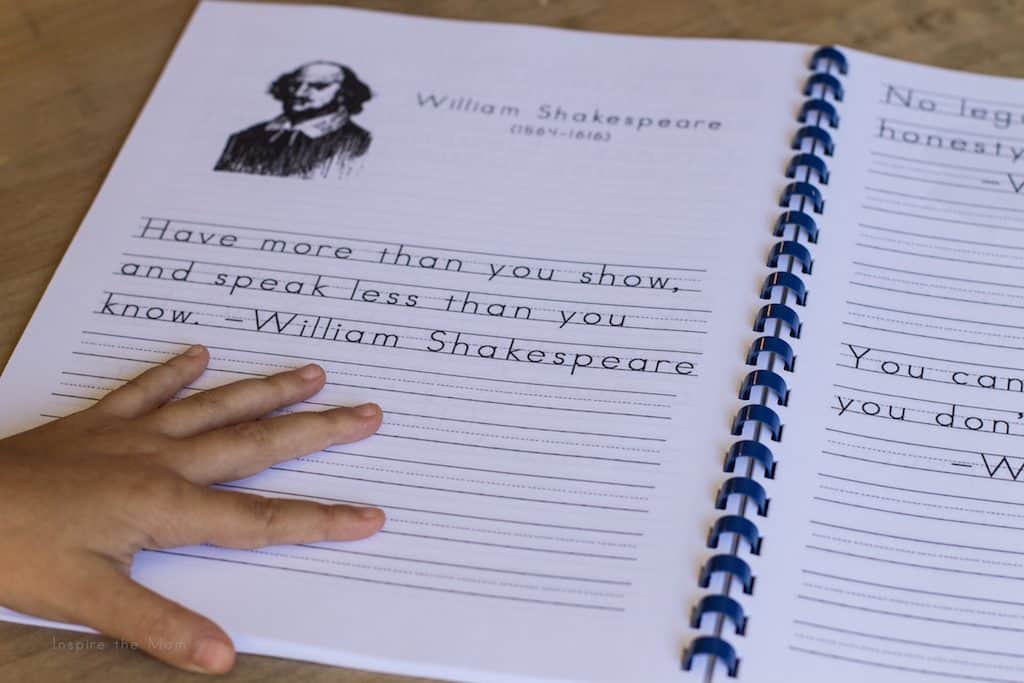 William Shakespeare
(1564-1616)
Have more than you show,
and speak less than you
know. -William Shakespeare
No
honesty
You can
you don't
Inspire the Mom